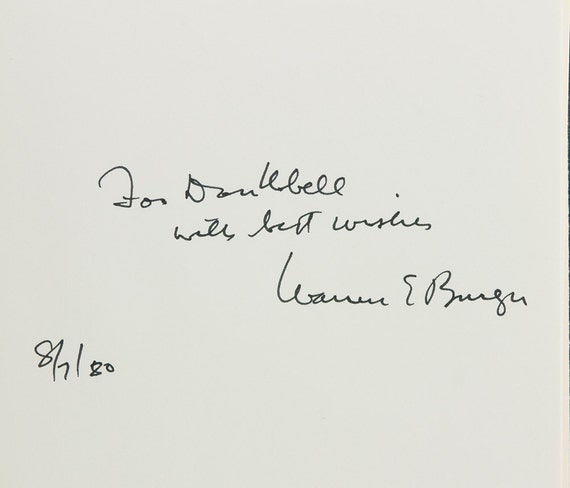 For Don Ubell
with best wishes
Warren E Burger
8/7/80